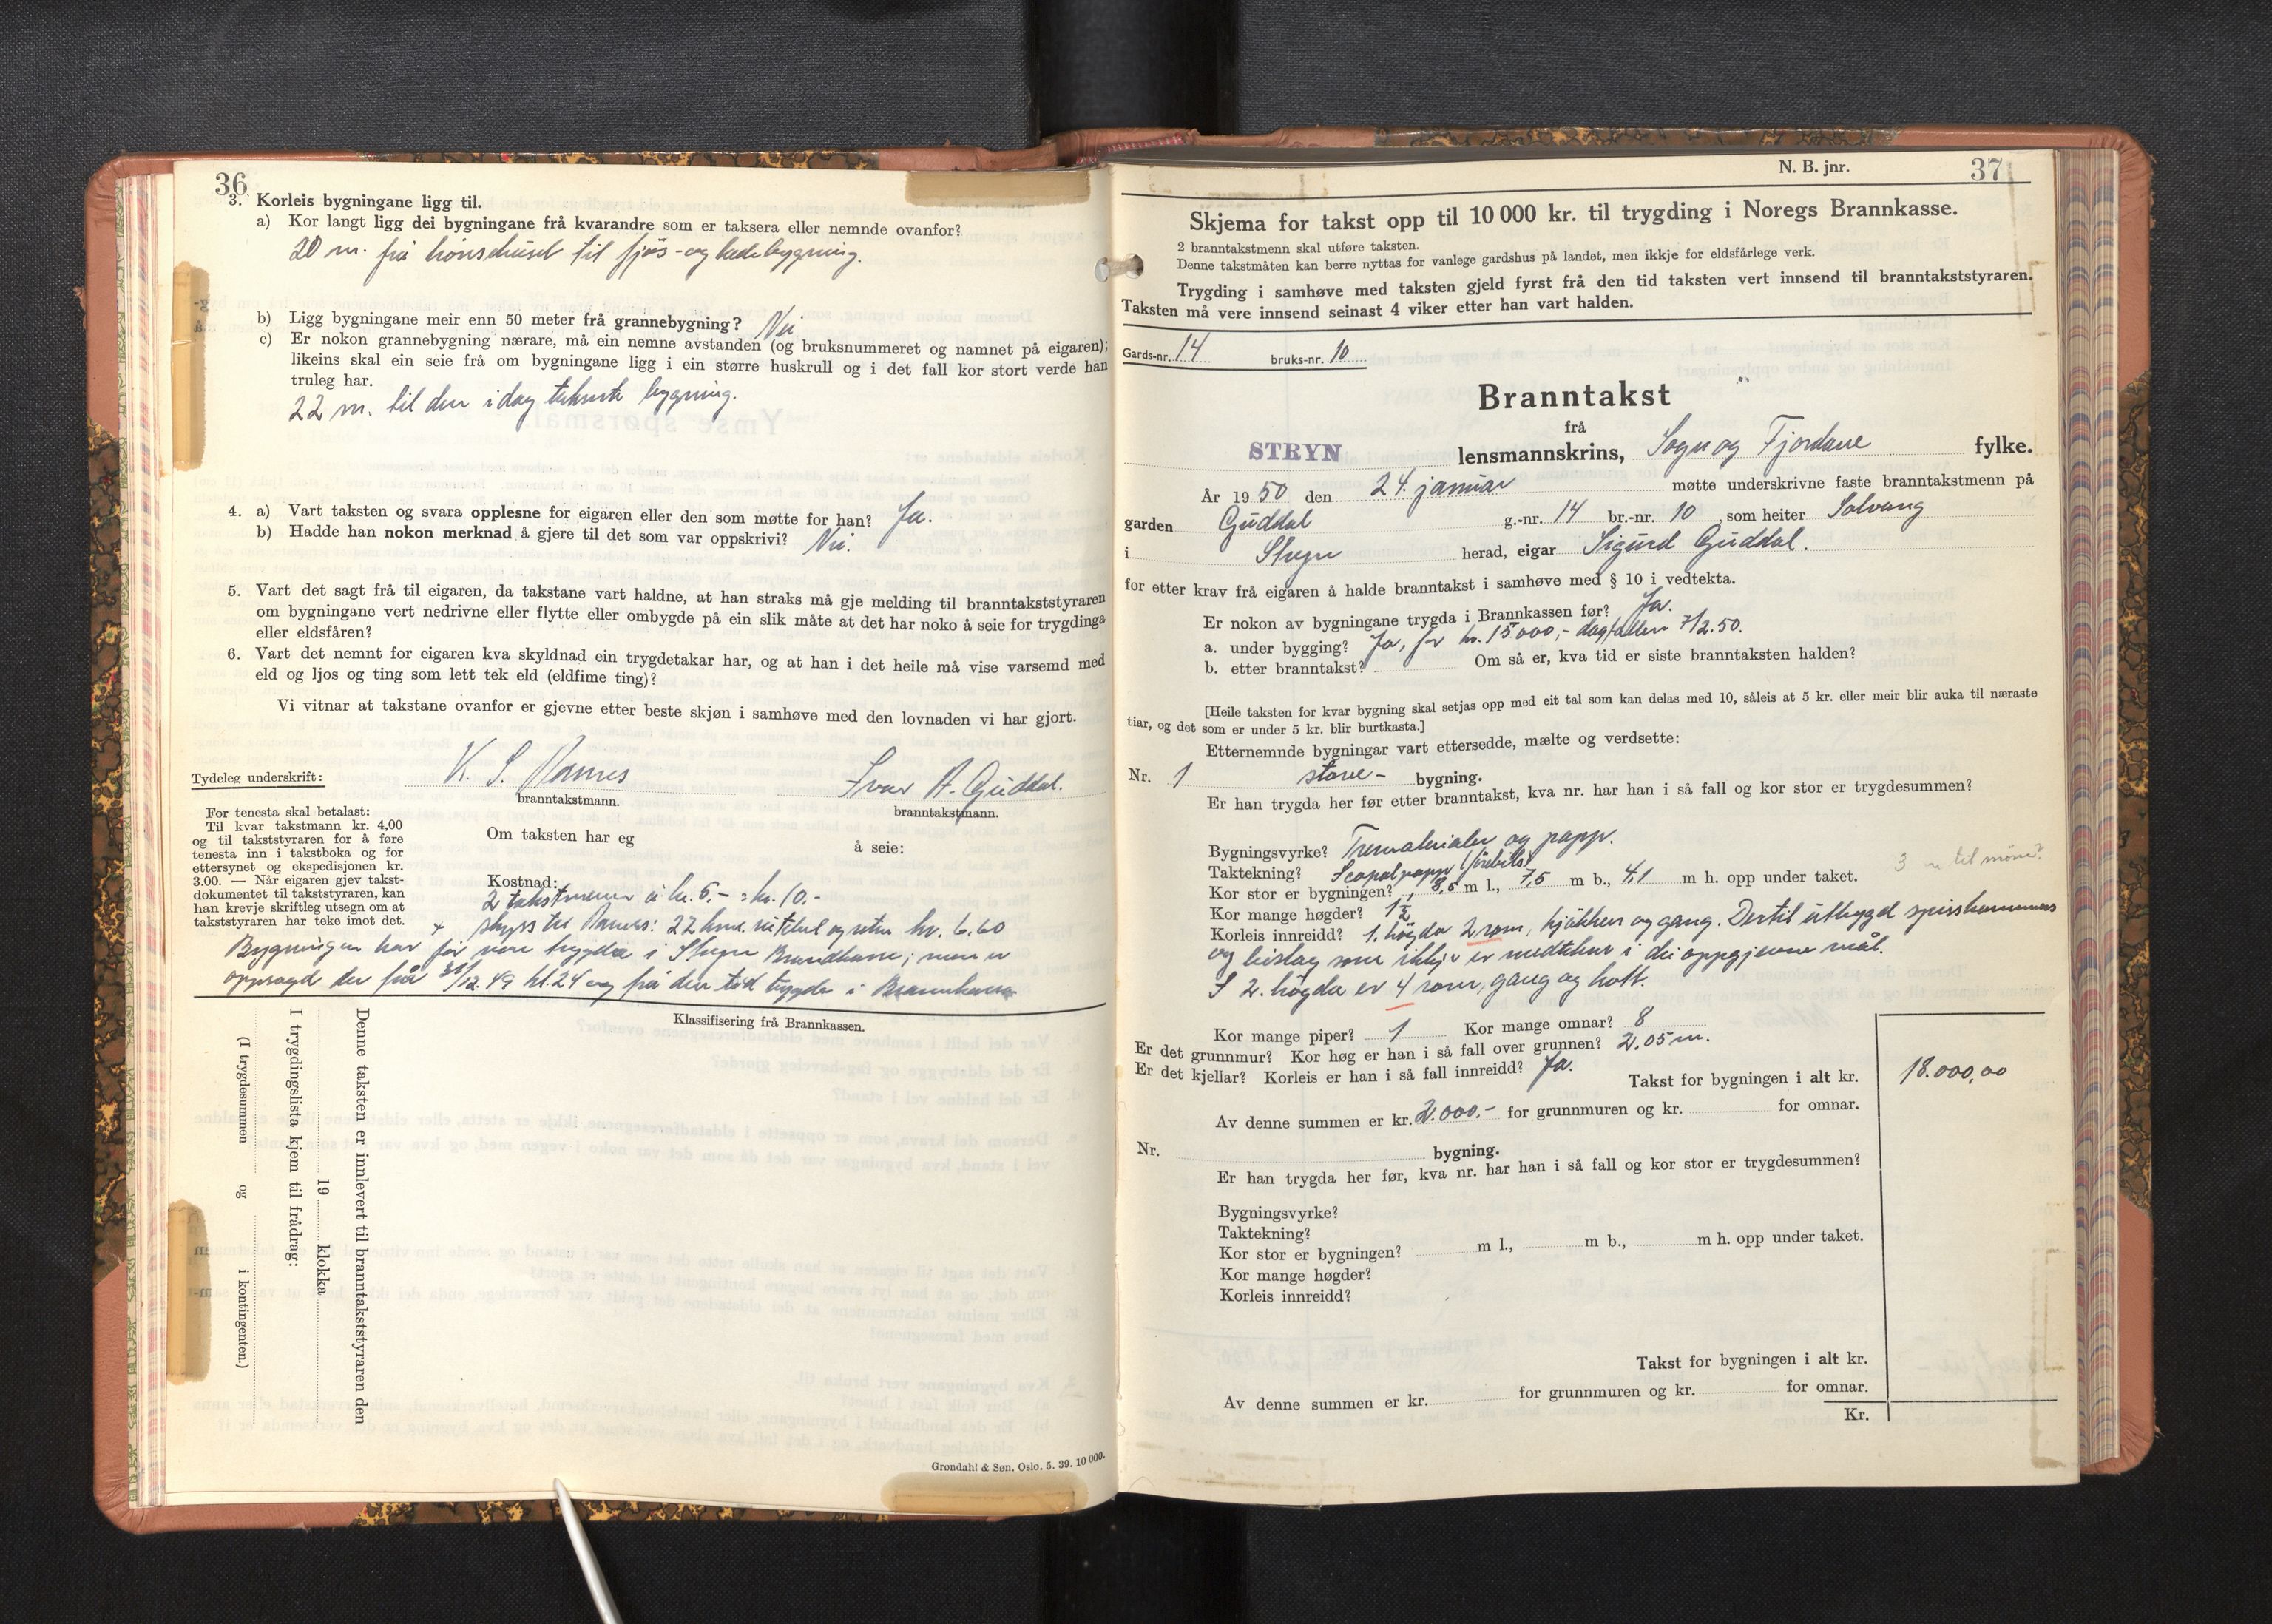 36
3. Korleis bygningane ligg til.
a) Kor langt ligg dei bygningane frå kvarandre som er taksera eller nemnde ovanfor?
20 m. frå hønsehuset til fjøs- og ladebygning.
b) Ligg bygningane meir enn 50 meter frå grannebygning? Nei
c) Er nokon grannebygning nærare, må ein nemne avstanden (og bruksnummeret og namnet på eigaren);
likeins skal ein seie frå om bygningane ligg i ein større huskrull og i det fall kor stort verde han
truleg har.
22 m. til den i dag takserte bygning.
4. a) Vart taksten og svara opplesne for eigaren eller den som møtte for han? Ja.
b) Hadde han nokon merknad å gjere til det som var oppskrivi? Nei.
5. Vart det sagt frå til eigaren, da takstane vart haldne, at han straks må gje melding til branntakststyraren
om bygningane vert nedrivne eller flytte eller ombygde på ein slik måte at det har noko å seie for trygdinga
eller eldsfåren?
6. Vart det nemnt for eigaren kva skyldnad ein trygdetakar har, og at han i det heile må vise varsemd med
eld og ljos og ting som lett tek eld (eldfime ting)?
Vi vitnar at takstane ovanfor er gjevne etter beste skjøn i samhøve med den lovnaden vi har gjort.
Tydeleg underskrift: K. S. Ramnes Ivar A. Guddal.
branntakstmann. branntakstmann.
For tenesta skal betalast:
Til kvar takstmann kr. 4,00
og til takststyraren for å føre
tenesta inn i takstboka og for
ettersynet og ekspedisjonen kr.
3.00. — Når eigaren gjev takst-
dokumentet til takststyraren, kan
han krevje skriftleg utsegn om at
takststyraren har teke imot det.
Om taksten har eg å seie:
Kostnad:
2 takstmenn à kr. 5.- = kr. 10.-
+ skyss til Ramnes: 22 km. og retur kr. 6.60
Bygningen har før vore trygda i Stryn Brandkasse; men er
oppsagd der frå 31/12.49 kl. 24 og frå den tid trygda i Brannkassa
Klassifisering frå Brannkassen.
Denne taksten er innlevert til branntakststyraren den
19 klokka
I trygdingslista kjem til frådrag:
(I trygdesummen og i kontingenten.)
Grøndahl & Søn. Oslo. 5. 39. 10 000.
N. B. jnr. 37
Skjema for takst opp til 10 000 kr. til trygding i Noregs Brannkasse.
2 branntakstmenn skal utføre taksten.
Denne takstmåten kan berre nyttas for vanlege gardshus på landet, men ikkje for eldsfårlege verk.
Trygding i samhøve med taksten gjeld fyrst frå den tid taksten vert innsend til branntakststyraren.
Taksten må vere innsend seinast 4 viker etter han vart halden.
Gards-nr. 14 bruks-nr. 10
Branntakst
frå
STRYN lensmannskrins, Sogn og Fjordane fylke.
År 1950 den 24. januar møtte underskrivne faste branntakstmenn på
garden Guddal g.-nr. 14 br.-nr. 10 som heiter Solvang
i Stryn herad, eigar Sigurd Guddal.
for etter krav frå eigaren å halde branntakst i samhøve med § 10 i vedtekta.
Er nokon av bygningane trygda i Brannkassen før? Ja.
a. under bygging? Ja, for kr. 15000,- 7/2.50.
b. etter branntakst? Om så er, kva tid er siste branntaksten halden?
[Heile taksten for kvar bygning skal setjas opp med eit tal som kan delas med 10, såleis at 5 kr. eller meir blir auka til næraste
tiar, og det som er under 5 kr. blir burtkasta.]
Etternemnde bygningar vart ettersedde, mælte og verdsette:
Nr. 1 stove- bygning.
Er han trygda her før etter branntakst, kva nr. har han i så fall og kor stor er trygdesummen?
Bygningsvyrke? Trematerialer og papp.
Taktekning?
Kor stor er bygningen? 8,5 m l., 7,5 m b., 4,1 m h. opp under taket. 3 m til møne?
Kor mange høgder? 1½
Korleis innreidd? 1. høgda 2 rom, kjøkken og gang. Dertil utbygd spiskammers
og bislag som ikkje er medtekne i dei oppgjevne mål.
I 2. høgda er 4 rom, gang og kott.
Kor mange piper? 1 Kor mange omnar? 8
Er det grunnmur? Kor høg er han i så fall over grunnen? 2.05 m.
Er det kjellar? Korleis er han i så fall innreidd? Ja.
Takst for bygningen i alt kr. 18.000,00
Av denne summen er kr. 2.000.- for grunnmuren og kr. for omnar.
Nr. bygning.
Er han trygda her før, kva nr. har han i så fall og kor stor er trygdesummen?
Bygningsvyrke?
Taktekning?
Kor stor er bygningen? m l., m b., m h. opp under taket.
Kor mange høgder?
Korleis innreidd?
Takst for bygningen i alt kr.
Av denne summen er kr. for grunnmuren og kr. for omnar.
Kr.